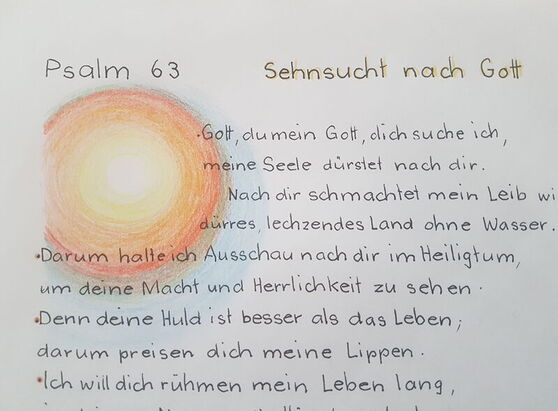 Psalm 63 Sehnsucht nach Gott
·Gott, du mein Gott, dich suche ich,
meine Seele dürstet nach dir.
Nach dir schmachtet mein Leib wi
dürres, lechzendes Land ohne Wasser.
·Darum halte ich Ausschau nach dir im Heiligtum,
um deine Macht und Herrlichkeit zu sehen.
·Denn deine Huld ist besser als das Leben;
darum preisen dich meine Lippen.
·Ich will dich rühmen mein Leben lang,